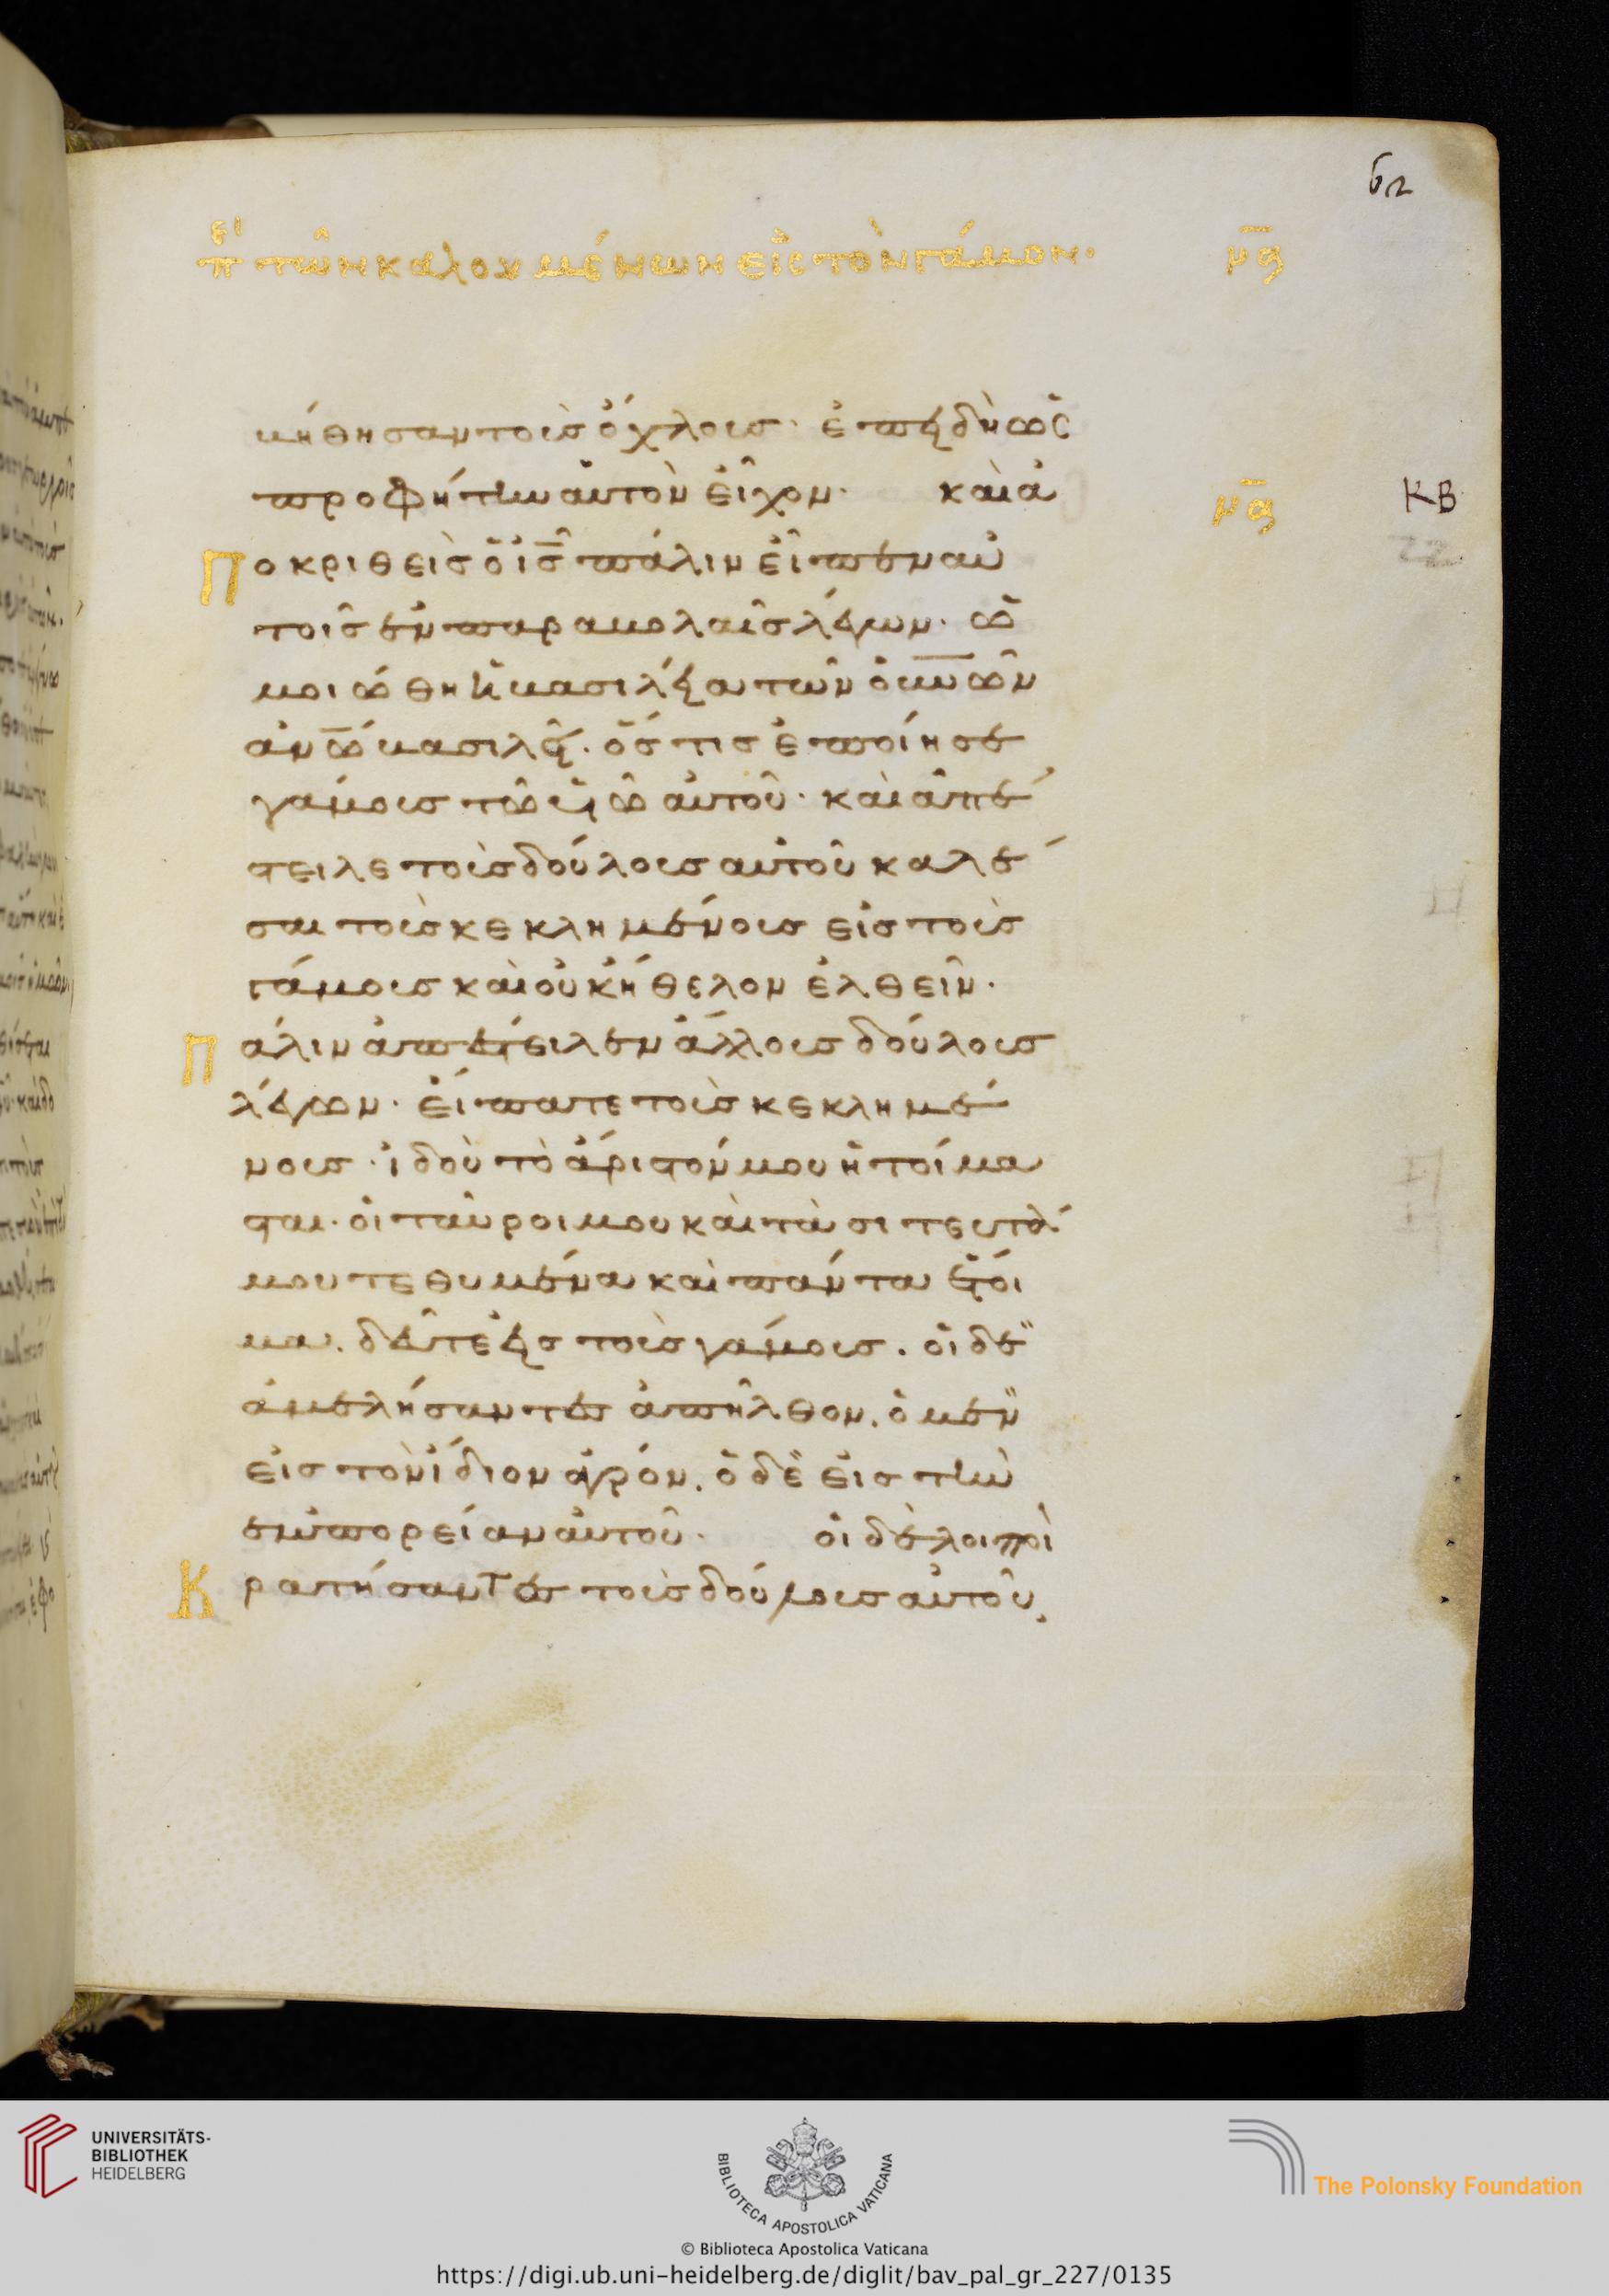 62
πει τῶν καλουμένων εἰς τὸν γάμον· μ̅ς̅
βήθησαν τοὺς ὄχλους· ἐπειδὴ ὡς
προφήτην αὐτὸν εἶχον· καὶ ἀ
ΚΒ
22
Ποκριθεὶς ὁ ι̅ς̅ πάλιν εἶπεν αὐ
τοῖς ἐν παραβολαῖς λέγων· ὡ
μοιώθη ἡ βασιλεία τῶν ο̅υ̅ν̅ω̅ν̅
α̅ν̅ω̅ βασιλεῖ· ὅστις ἐποίησε
γάμους τῶ υἱῶ αὐτοῦ· καὶ ἀπέ
στειλε τοὺς δούλους αὐτοῦ καλέ
σαι τοὺς κεκλημένους εἰς τοὺς
γάμους καὶ οὐκ ἤθελον ἐλθεῖν·
Πάλιν ἀπέστειλεν ἄλλους δούλους
λέγων· εἴπατε τοῖς κεκλημέ
νοις· ἰδοὺ τὸ ἄριστόν μου ἡτοίμα
σται· οἱ ταῦροι μου καὶ τὰ σιτευτά
μου τεθυμένα καὶ πάντα ἕτοι
μα. δεῦτε εἰς τοὺς γάμους. οἱ δὲ
ἀμελήσαντες ἀπῆλθον. ὁ μὲν
εἰς τὸν ἴδιον ἀγρόν. ὁ δὲ εἰς τὴν
ἐμπορείαν αὐτοῦ· οἱ δὲ λοιποὶ
Κρατήσαντες τοὺς δούλους αὐτοῦ.
UNIVERSITÄTS-
BIBLIOTHEK
HEIDELBERG
BIBLIOTECA APOSTOLICA VATICANA
The Polonsky Foundation
© Biblioteca Apostolica Vaticana
https://digi.ub.uni-heidelberg.de/diglit/bav_pal_gr_227/0135